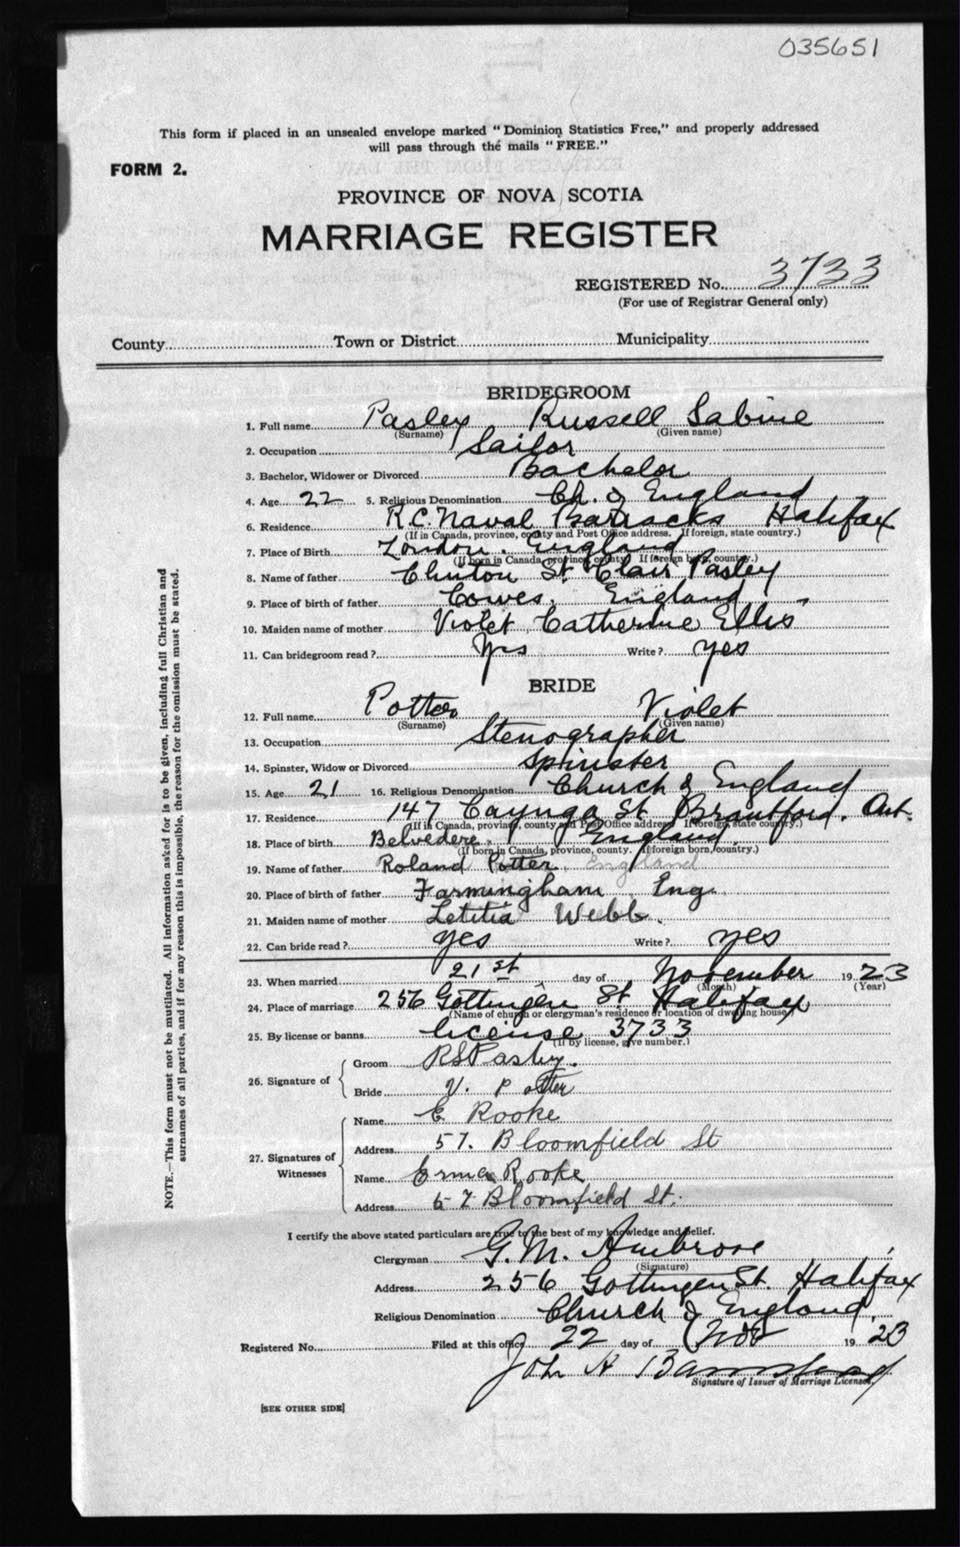 035651
This form if placed in an unsealed envelope marked "Dominion Statistics Free," and properly addressed
will pass through the mails "FREE."
FORM 2.
PROVINCE OF NOVA SCOTIA
MARRIAGE REGISTER
REGISTERED No. 3733
(For use of Registrar General only)
County Town or District Municipality
BRIDEGROOM
1. Full name Pasley Russell Sabine
(Surname) (Given name)
2. Occupation Sailor
3. Bachelor, Widower or Divorced Bachelor
4. Age 22 5. Religious Denomination Ch. of England
6. Residence R.C. Naval Barracks Halifax
(If in Canada, province, county and Post Office address. If foreign, state country.)
7. Place of Birth London. England
(If born in Canada, province, county. If foreign born, country.)
8. Name of father Clinton St. Clair Pasley
9. Place of birth of father Cowes. England
10. Maiden name of mother Violet Catherine Ellis
11. Can bridegroom read? Yes Write? yes
BRIDE
12. Full name Potter Violet
(Surname) (Given name)
13. Occupation Stenographer
14. Spinster, Widow or Divorced Spinster
15. Age 21 16. Religious Denomination Church of England
17. Residence 147 Cayuga St Brantford. Ont.
(If in Canada, province, county and Post Office address. If foreign, state country.)
18. Place of birth Belvedere. England.
(If born in Canada, province, county. If foreign born, country.)
19. Name of father Roland Potter. England
20. Place of birth of father Farmingham Eng.
21. Maiden name of mother Letitia Webb.
22. Can bride read? yes Write? yes
23. When married 21st day of November 1923
(Month) (Year)
24. Place of marriage 256 Gottingen St Halifax
(Name of church or clergyman's residence or location of dwelling house)
25. By license or banns license 3733
(If by license, give number.)
26. Signature of Groom RS Pasley.
Bride V. Potter
27. Signatures of Witnesses Name E Rooke
Address 57. Bloomfield St
Name Erma Rooke
Address 57 Bloomfield St.
I certify the above stated particulars are true to the best of my knowledge and belief.
Clergyman G.M. Ambrose
(Signature)
Address 256 Gottingen St. Halifax
Religious Denomination Church of England.
Registered No. Filed at this office 22 day of Nov 1923
John A
Signature of Issuer of Marriage Licenses.
[SEE OTHER SIDE]
NOTE.—This form must not be mutilated. All information asked for is to be given, including full Christian and
surnames of all parties, and if for any reason this is impossible, the reason for the omission must be stated.